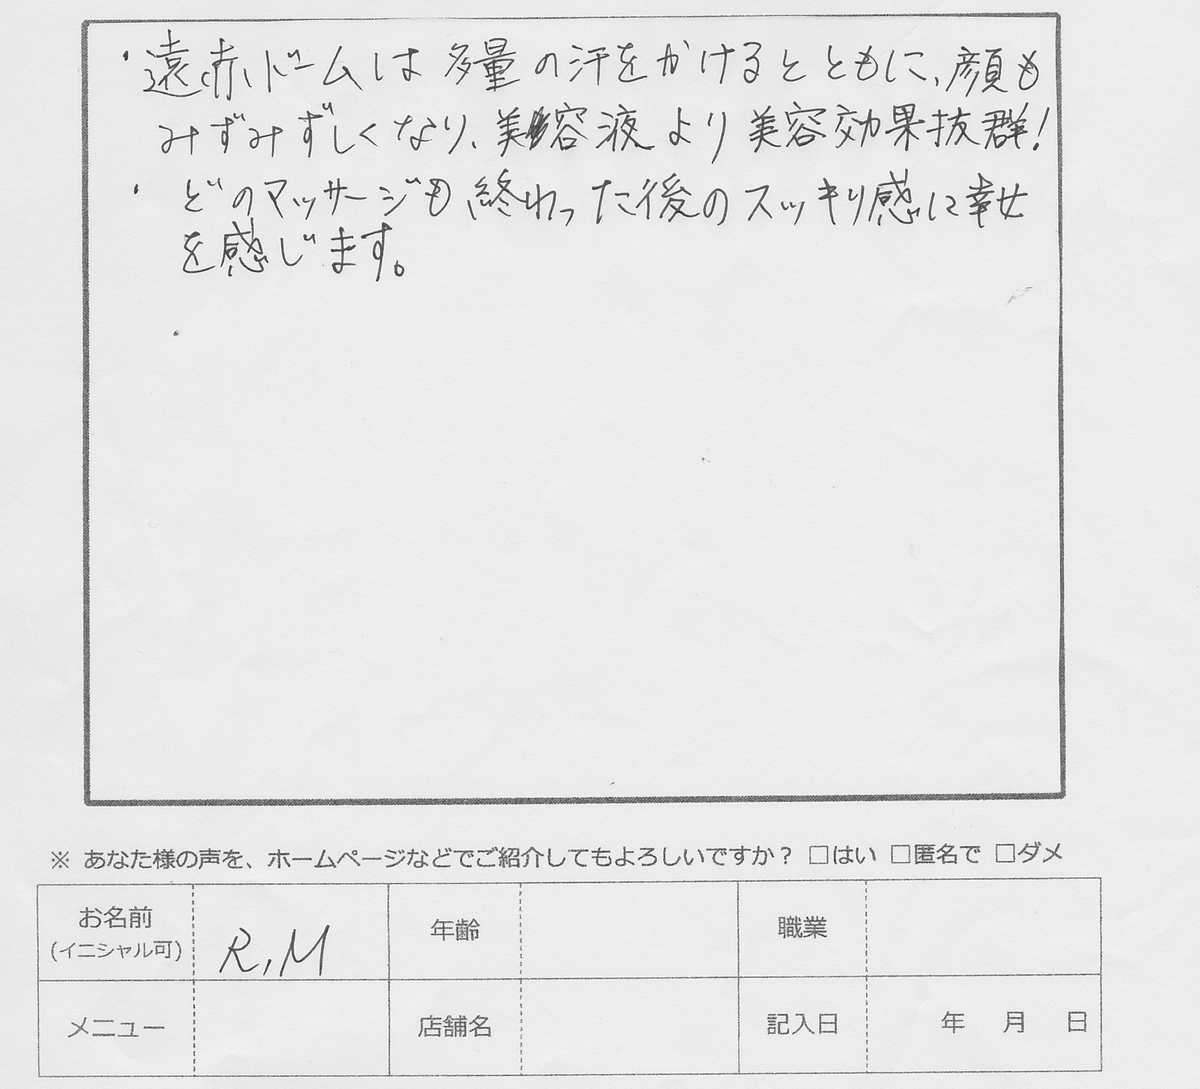 ・遠赤ドームは多量の汗をかけるとともに、顔も
みずみずしくなり、美容液より美容効果抜群!
・どのマッサージも終わった後のスッキリ感に幸せ
を感じます。
※ あなた様の声を、ホームページなどでご紹介してもよろしいですか? □はい □匿名で □ダメ
お名前 R,M 年齢 職業
(イニシャル可)
メニュー 店舗名 記入日 年 月 日